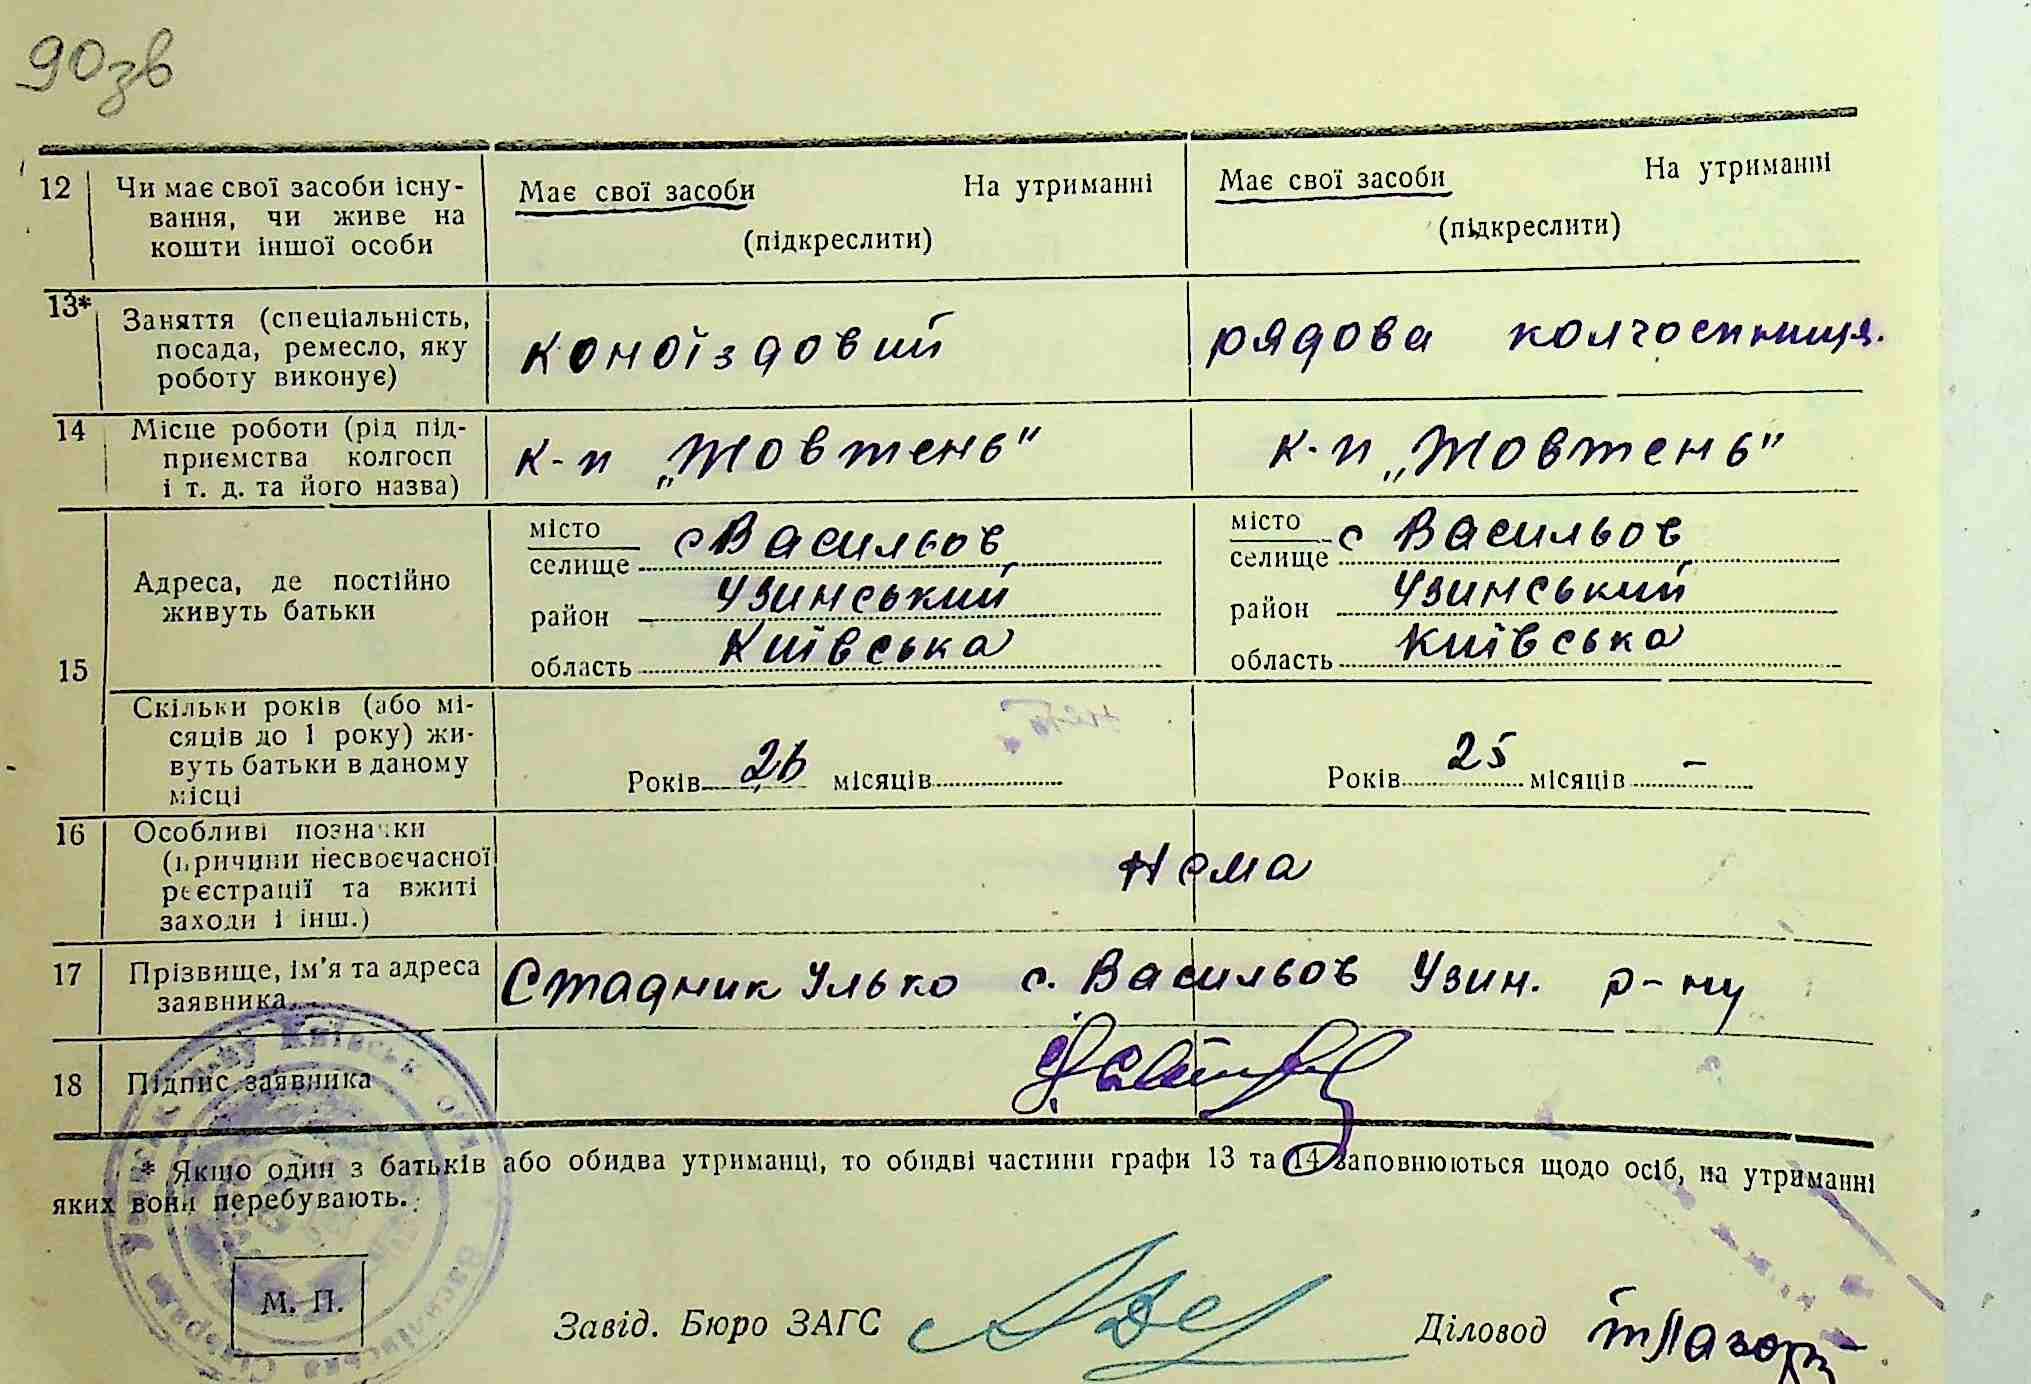 90зв
12 Чи має свої засоби існу- Має свої засоби На утриманні Має свої засоби На утриманні
вання, чи живе на (підкреслити) (підкреслити)
кошти іншої особи
13* Заняття (спеціальність, коноїздовий рядова колгоспниця.
посада, ремесло, яку
роботу виконує)
14 Місце роботи (рід під- к-п „Жовтень" к-п „Жовтень"
приємства колгосп
і т. д. та його назва)
15 Адреса, де постійно місто місто
живуть батьки селище с Васильов селище с Васильов
район Узинський район Узинський
область Київська область Київська
Скільки років (або мі-
сяців до 1 року) жи-
вуть батьки в даному Років 26 місяців Років 25 місяців –
місці
16 Особливі позначки Нема
(причини несвоєчасної
реєстрації та вжиті
заходи і інш.)
17 Прізвище, ім'я та адреса Стадник Улько с. Васильов Узин. р-ну
заявника.
18 Підпис заявника
* Якщо один з батьків або обидва утриманці, то обидві частини графи 13 та 14 заповнюються щодо осіб, на утриманні
яких вони перебувають.
М. П.
Завід. Бюро ЗАГС Діловод